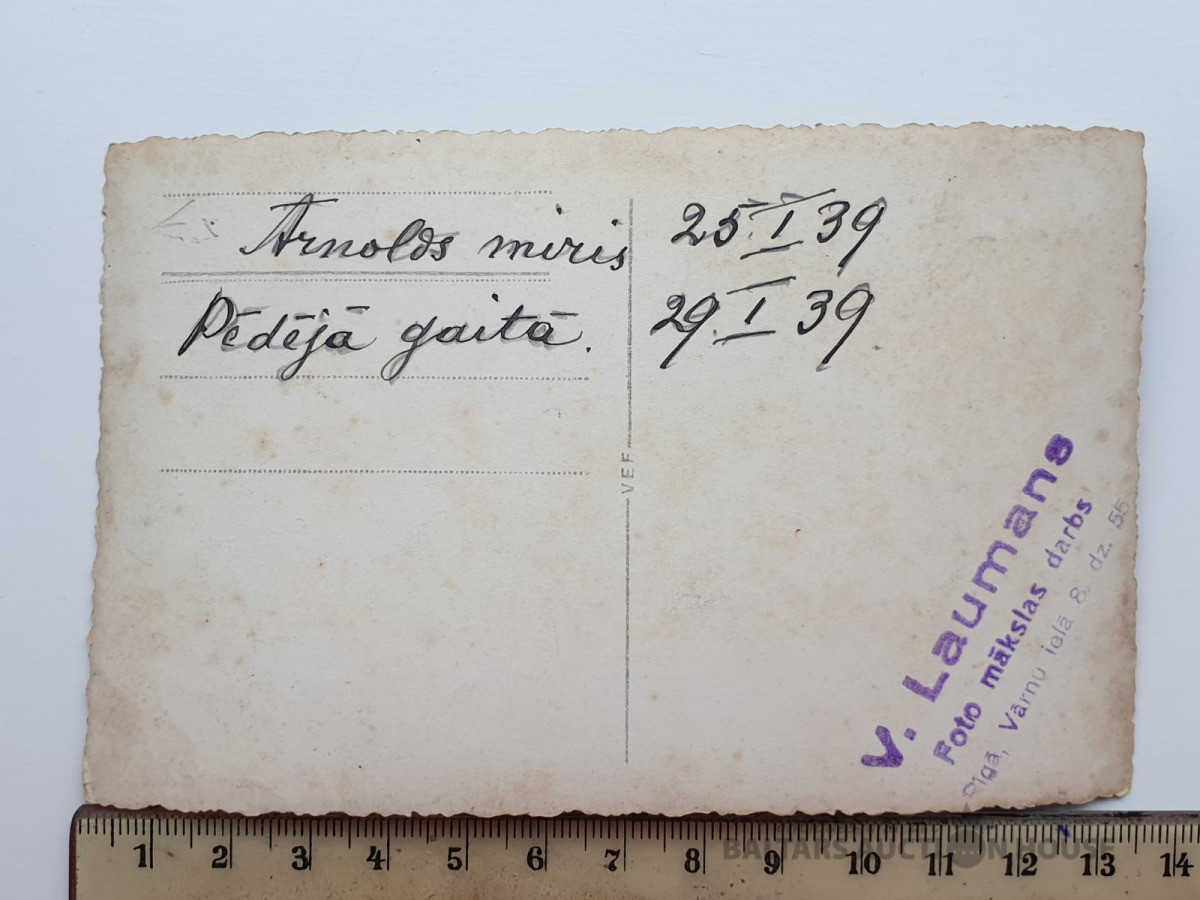 Arnolds miris 25. I 39
Pēdējā gaitā. 29. I 39
VEF
V. Laumans
Foto mākslas darbs
Rīgā, Vārnu ielā 8. dz. 55
1 2 3 4 5 6 7 8 9 10 11 12 13 14
BALTARS AUCTION HOUSE